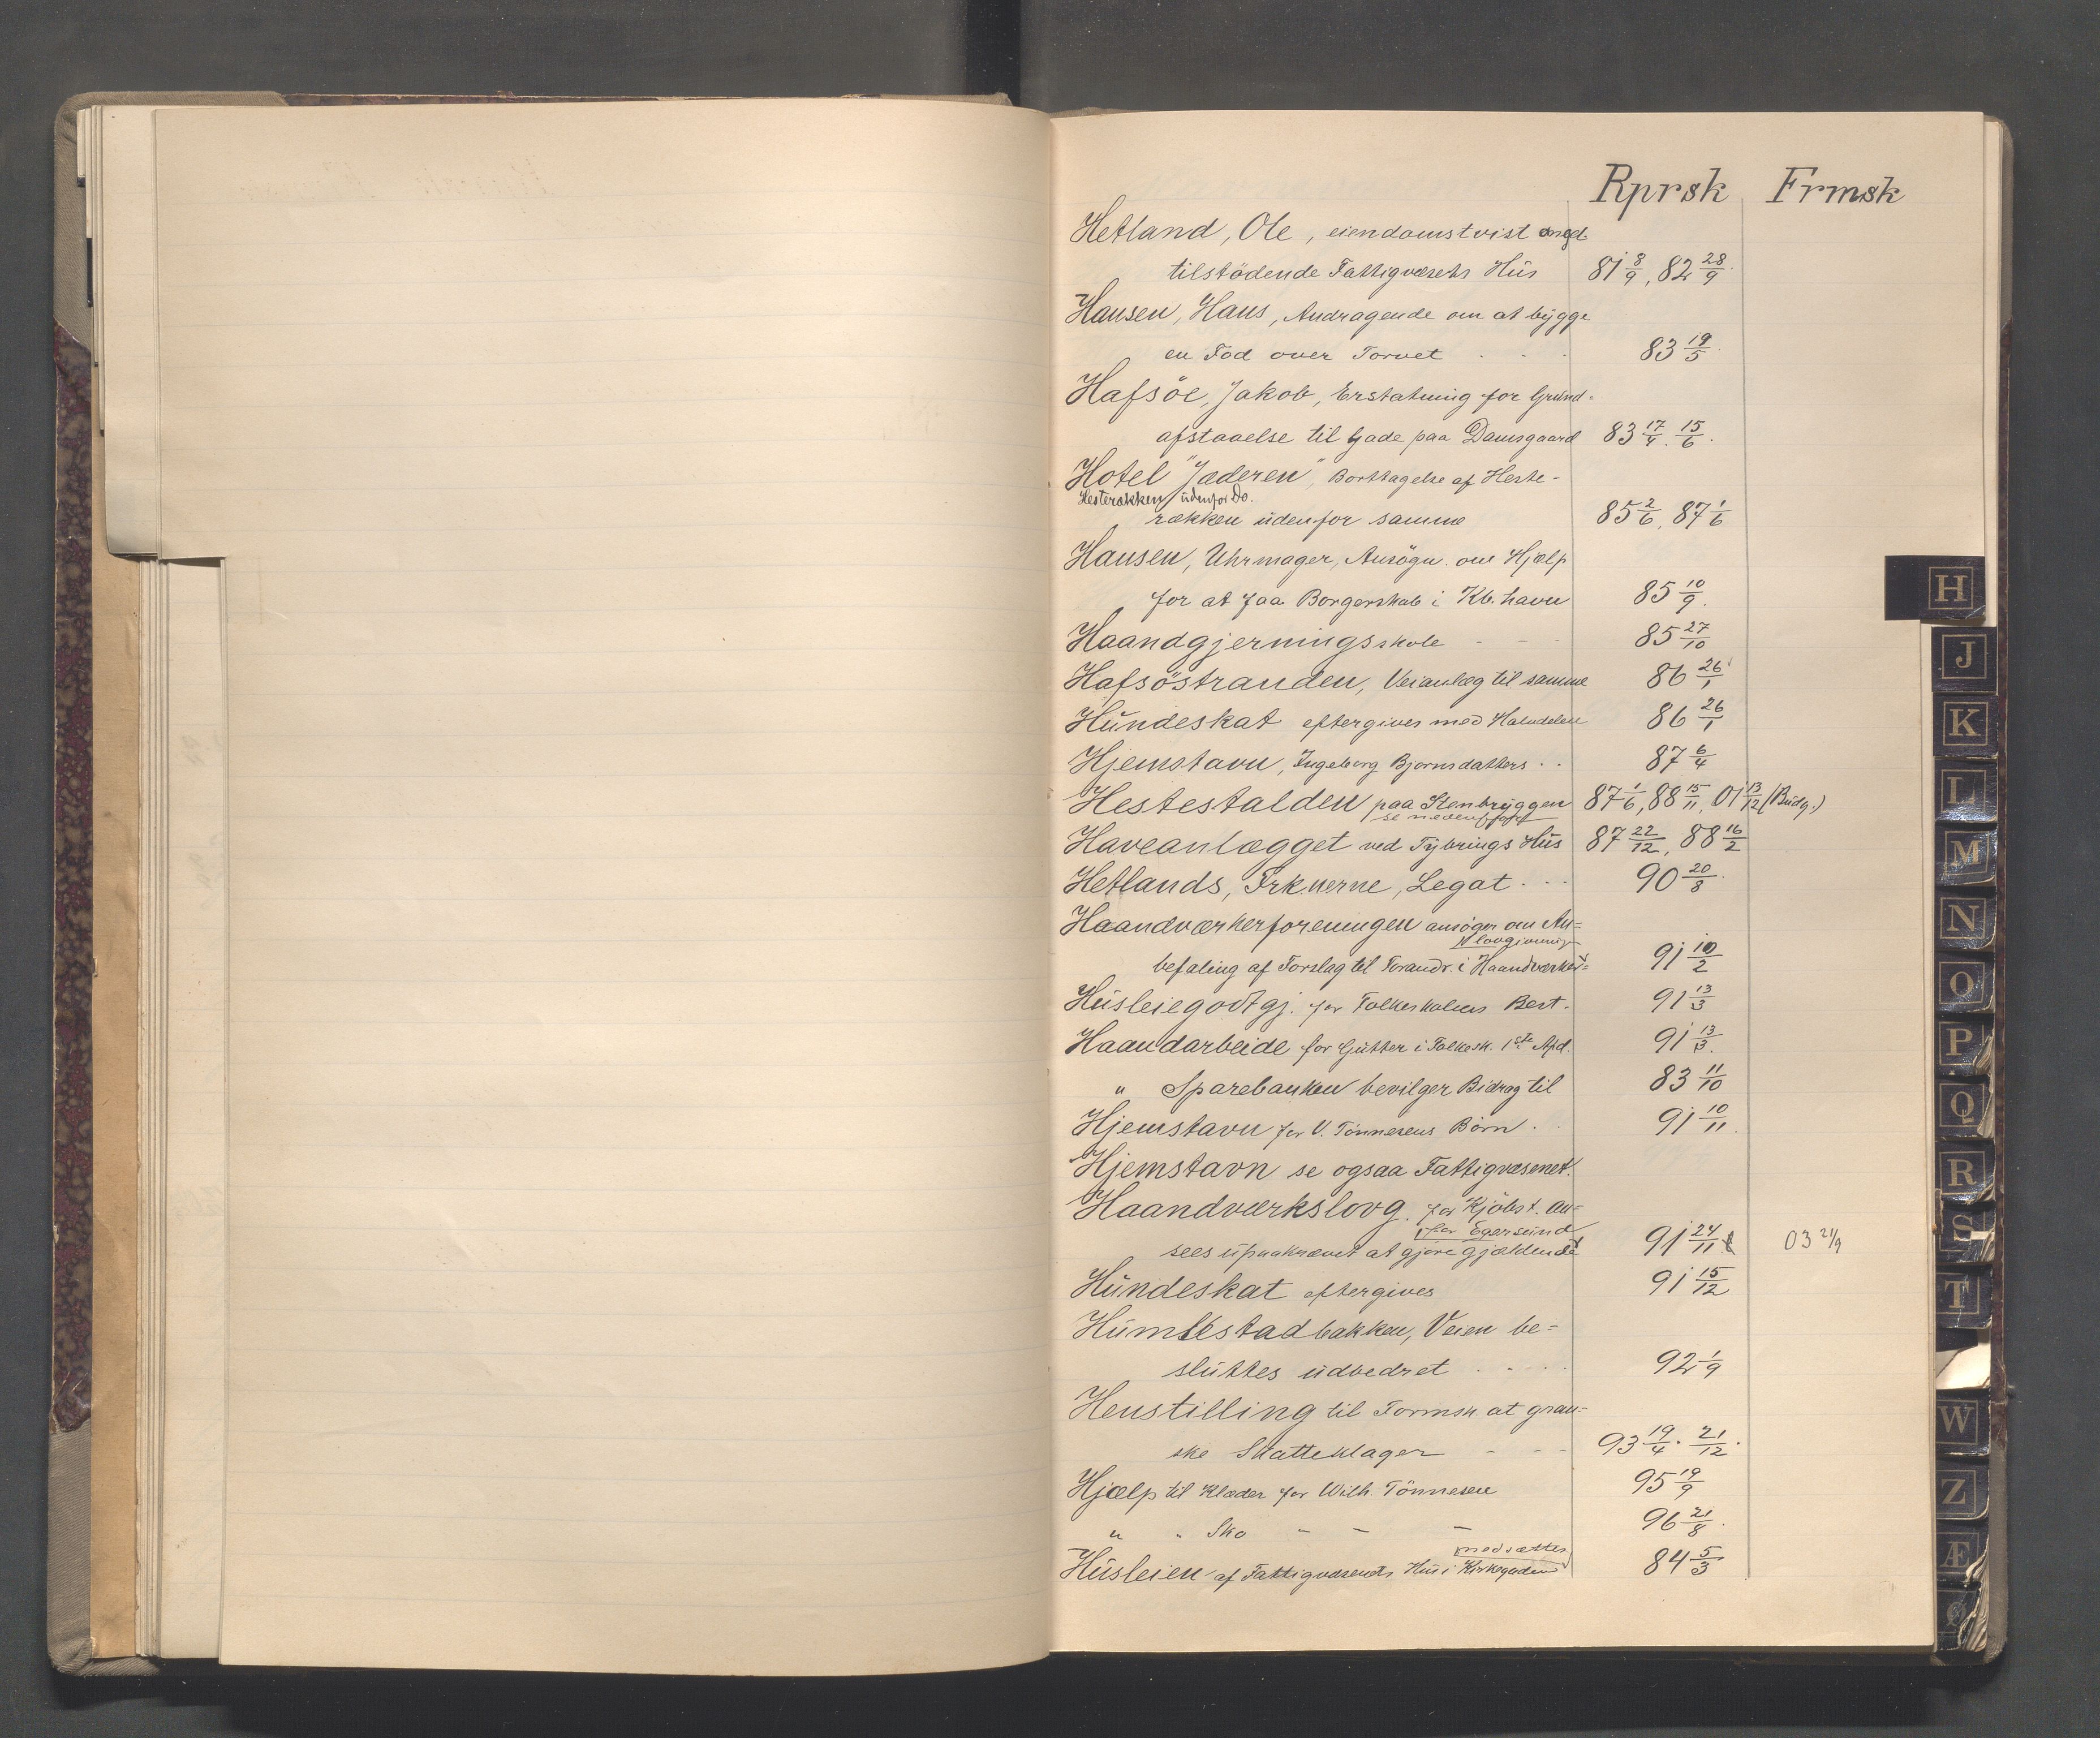 Rprsk Frmsk
Hetland, Ole, eiendomstvist angd.
tilstödende Fattigvæsets Hus 81 8/9, 82 28/9.
Hansen, Hans, Andragende om at bygge
en Fod over Torvet 83 19/5.
Hafsöe, Jakob, Erstatning for Grund-
afstaaelse til Gade paa Damsgaard 83 17/4. 15/6.
Hotel "Jæderen", Borttagelse af Heste-
Hesterækken udenfor Do.
rækken udenfor samme 85 2/6, 87 1/6
Hansen, Uhrmager, Ansögn. om Hjælp
for at faa Borgerskab i Kb.havn 85 10/9.
Haandgjerningsskole - - - 85 27/10
Hafsöstranden, Veianlæg til samme 86 26/1
Hundeskat eftergives med Halvdelen 86 26/1
Hjemstavn, Ingeborg Bjornsdatters . . 87 6/4
Hestestalden paa Stenbryggen 87 1/6, 88 15/11, 01 13/12 (Budg.)
se nedenfor
Haveanlægget ved Tybrings Hus 87 22/12, 88 16/2
Hetlands, Frknerne, Legat . . . 90 20/8.
Haandværkerforeningen ansöger om An=
lovgivning
befaling af Forslag til Forandr. i Haandværker= 91 10/2
Husleiegodtgj. for Folkeskolens Best. 91 13/3
Haandarbeide for Gutter i Folkesk. 1ste Afd. 91 13/3.
" Sparebanken bevilger Bidrag til 83 11/10
Hjemstavn for V. Tönnesens Börn . . 91 10/11.
Hjemstavn se ogsaa Fattigvæsenet.
Haandværkslovg. for Kjöbst. an=
for Egersund
sees upaakrævet at gjöre gjældende 91 24/11 03 21/9
Hundeskat eftergives 91 15/12
Humlestadbakken, Veien be=
sluttes udbedret . . . . 92 1/9
Henstilling til Formsk at gran=
ske Skatteklager - - - 93 19/4. 21/12.
Hjælp til Klæder for Wilh. Tönnesen 95 19/9
" " Sko - - - 96 21/8.
nedsættes
Husleien af Fattigvæsenets Hus i Kirkegaden 84 5/3
H
J
K
L
M
N
O
P
Q
R
S
T
W
Z
Æ
Ø